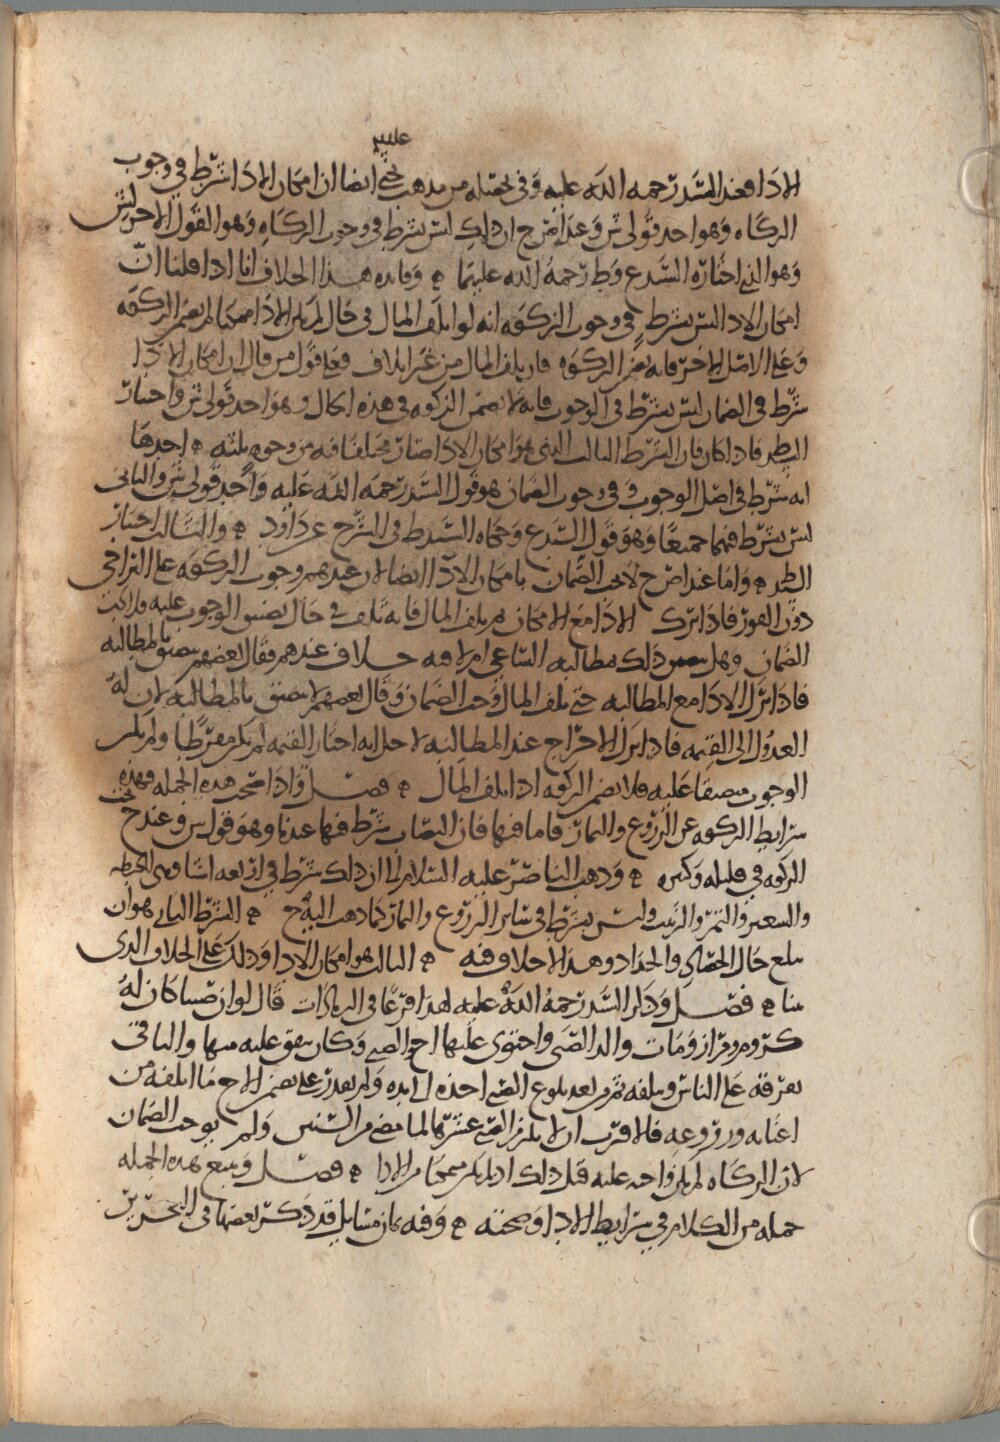 عليهم
الاداء فعند السيد رحمه الله عليه وفى تحصيله من مذهب يحيى ايضا ان امكان الاداء شرط فى وجوب
الزكاه وهو احد قولى ش وعند اص ح ان ذلك ليس بشرط فى وجوب الزكاه وهو القول الاخر لش
وهو الذى اختاره السيد ع وط رحمه الله عليهما وفايده هذا الخلاف انا اذا قلنا ان
امكان الاداء ليس بشرط فى وجوب الزكوه انه لو اتلف المال فى حال لم يكن الاداء ممكنا لم يضمن الزكوه
وعلى الاصل الاخر فانه يضمن الزكوه فان تلف المال من غير اتلاف فعلى قول من قال ان امكان الاداء
شرط فى الضمان ليس بشرط فى الوجوب فانه لا يضمن الزكوه فى هذه الحال وهو احد قولى ش واختاره
السيد ط فاذا كان فان الشرط الثالث الذى هو امكان الاداء صار مختلفا فيه من وجوه ثلثه احدها
انه شرط فى اصل الوجوب وفى وجوب الضمان هو قول السيد رحمه الله عليه واحد قولى ش والثانى
ليس بشرط فيهما جميعا وهو قول السيد ع وحكاه السيد ط فى الشرح عن داود والثالث اختاره
السيد ط واما عند اص ح لا يجب الضمان بامكان الاداء ايضا لان عندهم وجوب الزكوه على التراخى
دون الفور فاذا ترك الاداء مع الامكان ثم تلف المال فانه تلف فى حال يضيق الوجوب عليه فلا يجب
الضمان وهل يضيق ذلك مطالبه الساعى ام لا فيه خلاف عندهم فقال بعضهم يضيق بالمطالبه
فاذا ترك الاداء مع المطالبه حتى تلف المال وجب الضمان وقال بعضهم لا يضيق بالمطالبه لان له
العدول الى القيمه فاذا ترك الاخراج عند المطالبه لاجل انه اختار القيمه لم يكن مفرطا ولم يكن
الوجوب مضيقا عليه فلا يضمن الزكوه اذا تلف المال فصل واذا صحت هذه الجمله فهذه
شرايط الزكوه عن الزروع والثمار فاما فيها فان النصاب شرط فيها عندنا وهو قول س و عند ح تجب
الزكوه فى قليله وكثيره وذهب الناصر عليه السلام الى ان ذلك شرط فى اربعه اشيا وهى الحنطه
والشعير والتمر والزبيب وليس بشرط فى ساير الزروع والثمار كما ذهب اليه ح الشرط الثانى هو ان
يبلغ حال الحصاد والجداد وهذا لا خلاف فيه الثالث هو امكان الاداء وذلك على الخلاف الذى
بينا فصل وذكر السيد رحمه الله عليه لهذا فرعا فى الزيادات قال لو ان صبيا كان له
كروم ومزارع ومات والد الصبى واحتوى عليها اخو الصبى وكان ينفق عليه منها والباقى
يفرقه على الناس ويتلفه ثم بعد بلوغ الصبى اخذه الى يده ولم يقدر على تضمين الاخ ما اتلفه من
اعنابه وزروعه فالاقرب ان لا يلزم الصبى عشرها لما مضى من السنين ولم يوجب الضمان
لان الزكاه لم يكن واجبه عليه قبل ذلك اذ لم يكن متمكنا من الاداء فصل ويتبع هذه الجمله
جمله من الكلام فى شرايط الاداء وصحته وفيه ثمان مسايل قد ذكر بعضها فى التحرير